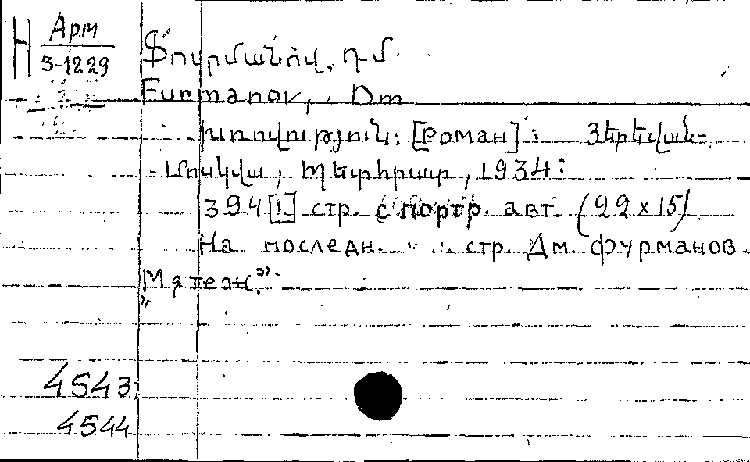 Н Арм
3-1229
Ֆուրմանով, Դմ.
Furmanov, Dm
Խռովություն: [Роман]: Յերեվան-
Մոսկվա, Պետհրատ, 1934:
394[1] стр. с портр. авт. (22 x 15)
На последн. стр. Дм. Фурманов.
"Мятеж".
4543
4544